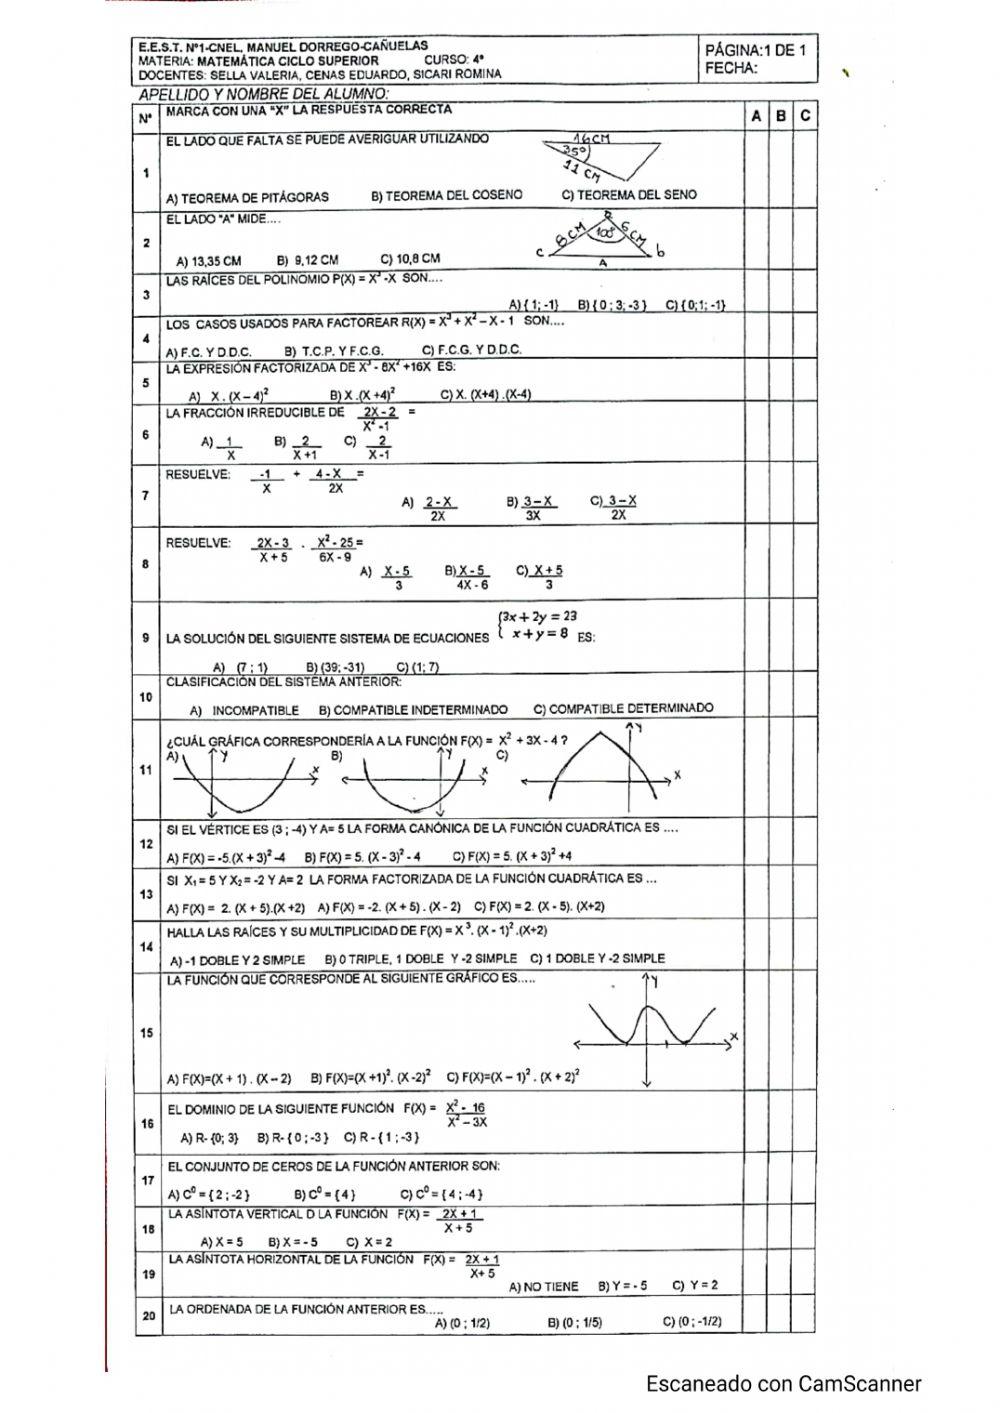 E.E.S.T. Nº1-CNEL, MANUEL DORREGO-CAÑUELAS
MATERIA: MATEMÁTICA CICLO SUPERIOR CURSO: 4º
DOCENTES: SELLA VALERIA, CENAS EDUARDO, SICARI ROMINA
PÁGINA:1 DE 1
FECHA:
APELLIDO Y NOMBRE DEL ALUMNO:
Nº MARCA CON UNA "X" LA RESPUESTA CORRECTA A B C
1 EL LADO QUE FALTA SE PUEDE AVERIGUAR UTILIZANDO
16CM
35º
11 CM
A) TEOREMA DE PITÁGORAS B) TEOREMA DEL COSENO C) TEOREMA DEL SENO
2 EL LADO "A" MIDE....
8CM 100º 6CM
c b
A
A) 13,35 CM B) 9,12 CM C) 10,8 CM
3 LAS RAÍCES DEL POLINOMIO P(X) = X³ -X SON....
A) { 1; -1} B) { 0 ; 3; -3 } C) {0;1; -1}
4 LOS CASOS USADOS PARA FACTOREAR R(X) = X³ + X² – X - 1 SON....
A) F.C. Y D.D.C. B) T.C.P. Y F.C.G. C) F.C.G. Y D.D.C.
5 LA EXPRESIÓN FACTORIZADA DE X³ - 8X² +16X ES:
A) X . (X – 4)² B) X .(X +4)² C) X. (X+4) .(X-4)
6 LA FRACCIÓN IRREDUCIBLE DE 2X - 2 =
X² -1
A) 1 B) 2 C) 2
X X +1 X -1
7 RESUELVE: -1 + 4 - X =
X 2X
A) 2 - X B) 3 – X C) 3 – X
2X 3X 2X
8 RESUELVE: 2X - 3 . X² - 25 =
X + 5 6X - 9
A) X - 5 B) X - 5 C) X + 5
3 4X - 6 3
9 LA SOLUCIÓN DEL SIGUIENTE SISTEMA DE ECUACIONES { 3x + 2y = 23
x + y = 8 ES:
A) (7 ; 1) B) (39; -31) C) (1; 7)
10 CLASIFICACIÓN DEL SISTEMA ANTERIOR:
A) INCOMPATIBLE B) COMPATIBLE INDETERMINADO C) COMPATIBLE DETERMINADO
11 ¿CUÁL GRÁFICA CORRESPONDERÍA A LA FUNCIÓN F(X) = X² + 3X - 4 ?
A) Y X B) Y X C) Y X
12 SI EL VÉRTICE ES (3 ; -4) Y A= 5 LA FORMA CANÓNICA DE LA FUNCIÓN CUADRÁTICA ES ....
A) F(X) = -5.(X + 3)² -4 B) F(X) = 5. (X - 3)² - 4 C) F(X) = 5. (X + 3)² +4
13 SI X₁ = 5 Y X₂ = -2 Y A= 2 LA FORMA FACTORIZADA DE LA FUNCIÓN CUADRÁTICA ES ...
A) F(X) = 2. (X + 5).(X +2) A) F(X) = -2. (X + 5) . (X - 2) C) F(X) = 2. (X - 5). (X+2)
14 HALLA LAS RAÍCES Y SU MULTIPLICIDAD DE F(X) = X ³. (X - 1)² .(X+2)
A) -1 DOBLE Y 2 SIMPLE B) 0 TRIPLE, 1 DOBLE Y -2 SIMPLE C) 1 DOBLE Y -2 SIMPLE
15 LA FUNCIÓN QUE CORRESPONDE AL SIGUIENTE GRÁFICO ES.....
Y
X
A) F(X)=(X + 1) . (X – 2) B) F(X)=(X +1)². (X -2)² C) F(X)=(X – 1)² . (X + 2)²
16 EL DOMINIO DE LA SIGUIENTE FUNCIÓN F(X) = X² - 16
X² – 3X
A) R- {0; 3} B) R- { 0 ; -3 } C) R - { 1 ; -3 }
17 EL CONJUNTO DE CEROS DE LA FUNCIÓN ANTERIOR SON:
A) C⁰ = { 2 ; -2 } B) C⁰ = { 4 } C) C⁰ = { 4 ; -4 }
18 LA ASÍNTOTA VERTICAL D LA FUNCIÓN F(X) = 2X + 1
X + 5
A) X = 5 B) X = - 5 C) X = 2
19 LA ASÍNTOTA HORIZONTAL DE LA FUNCIÓN F(X) = 2X + 1
X+ 5
A) NO TIENE B) Y = - 5 C) Y = 2
20 LA ORDENADA DE LA FUNCIÓN ANTERIOR ES.....
A) (0 ; 1/2) B) (0 ; 1/5) C) (0 ; -1/2)
Escaneado con CamScanner